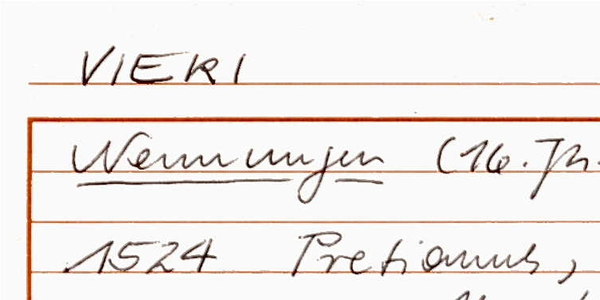 VIERI
Nennungen (16. Jh.
1524 Pretiannus,